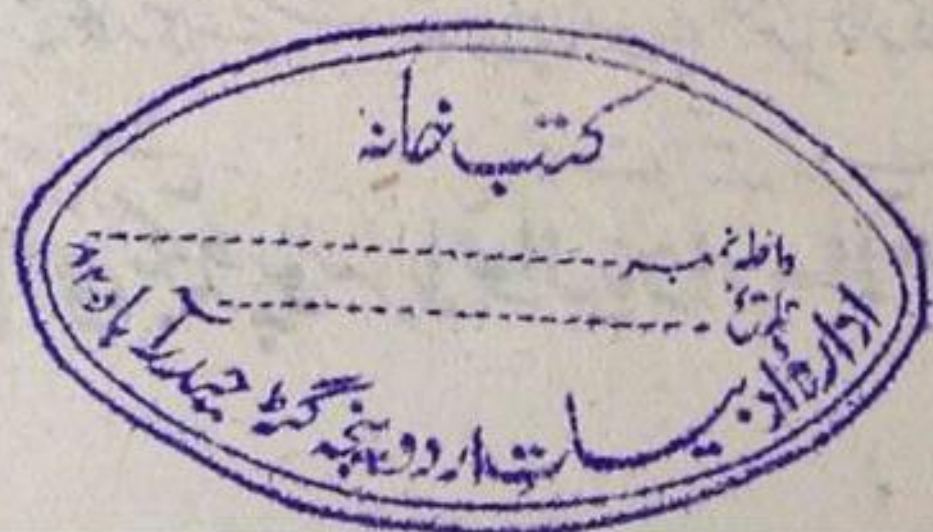 کتب خانہ
داخلہ نمبر
تاریخ
ادارۂ ادبیات اردو پنجہ گٹہ حیدرآباد